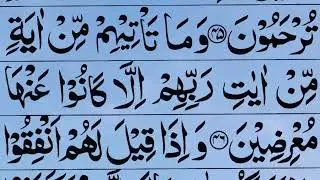 تُرْحَمُوْنَ ﴿۴۵﴾ وَمَا تَاْتِيْهِمْ مِّنْ اٰيَةٍ
مِّنْ اٰيٰتِ رَبِّهِمْ اِلَّا كَانُوْا عَنْهَا
مُعْرِضِيْنَ ﴿۴۶﴾ وَاِذَا قِيْلَ لَهُمْ اَنْفِقُوْا